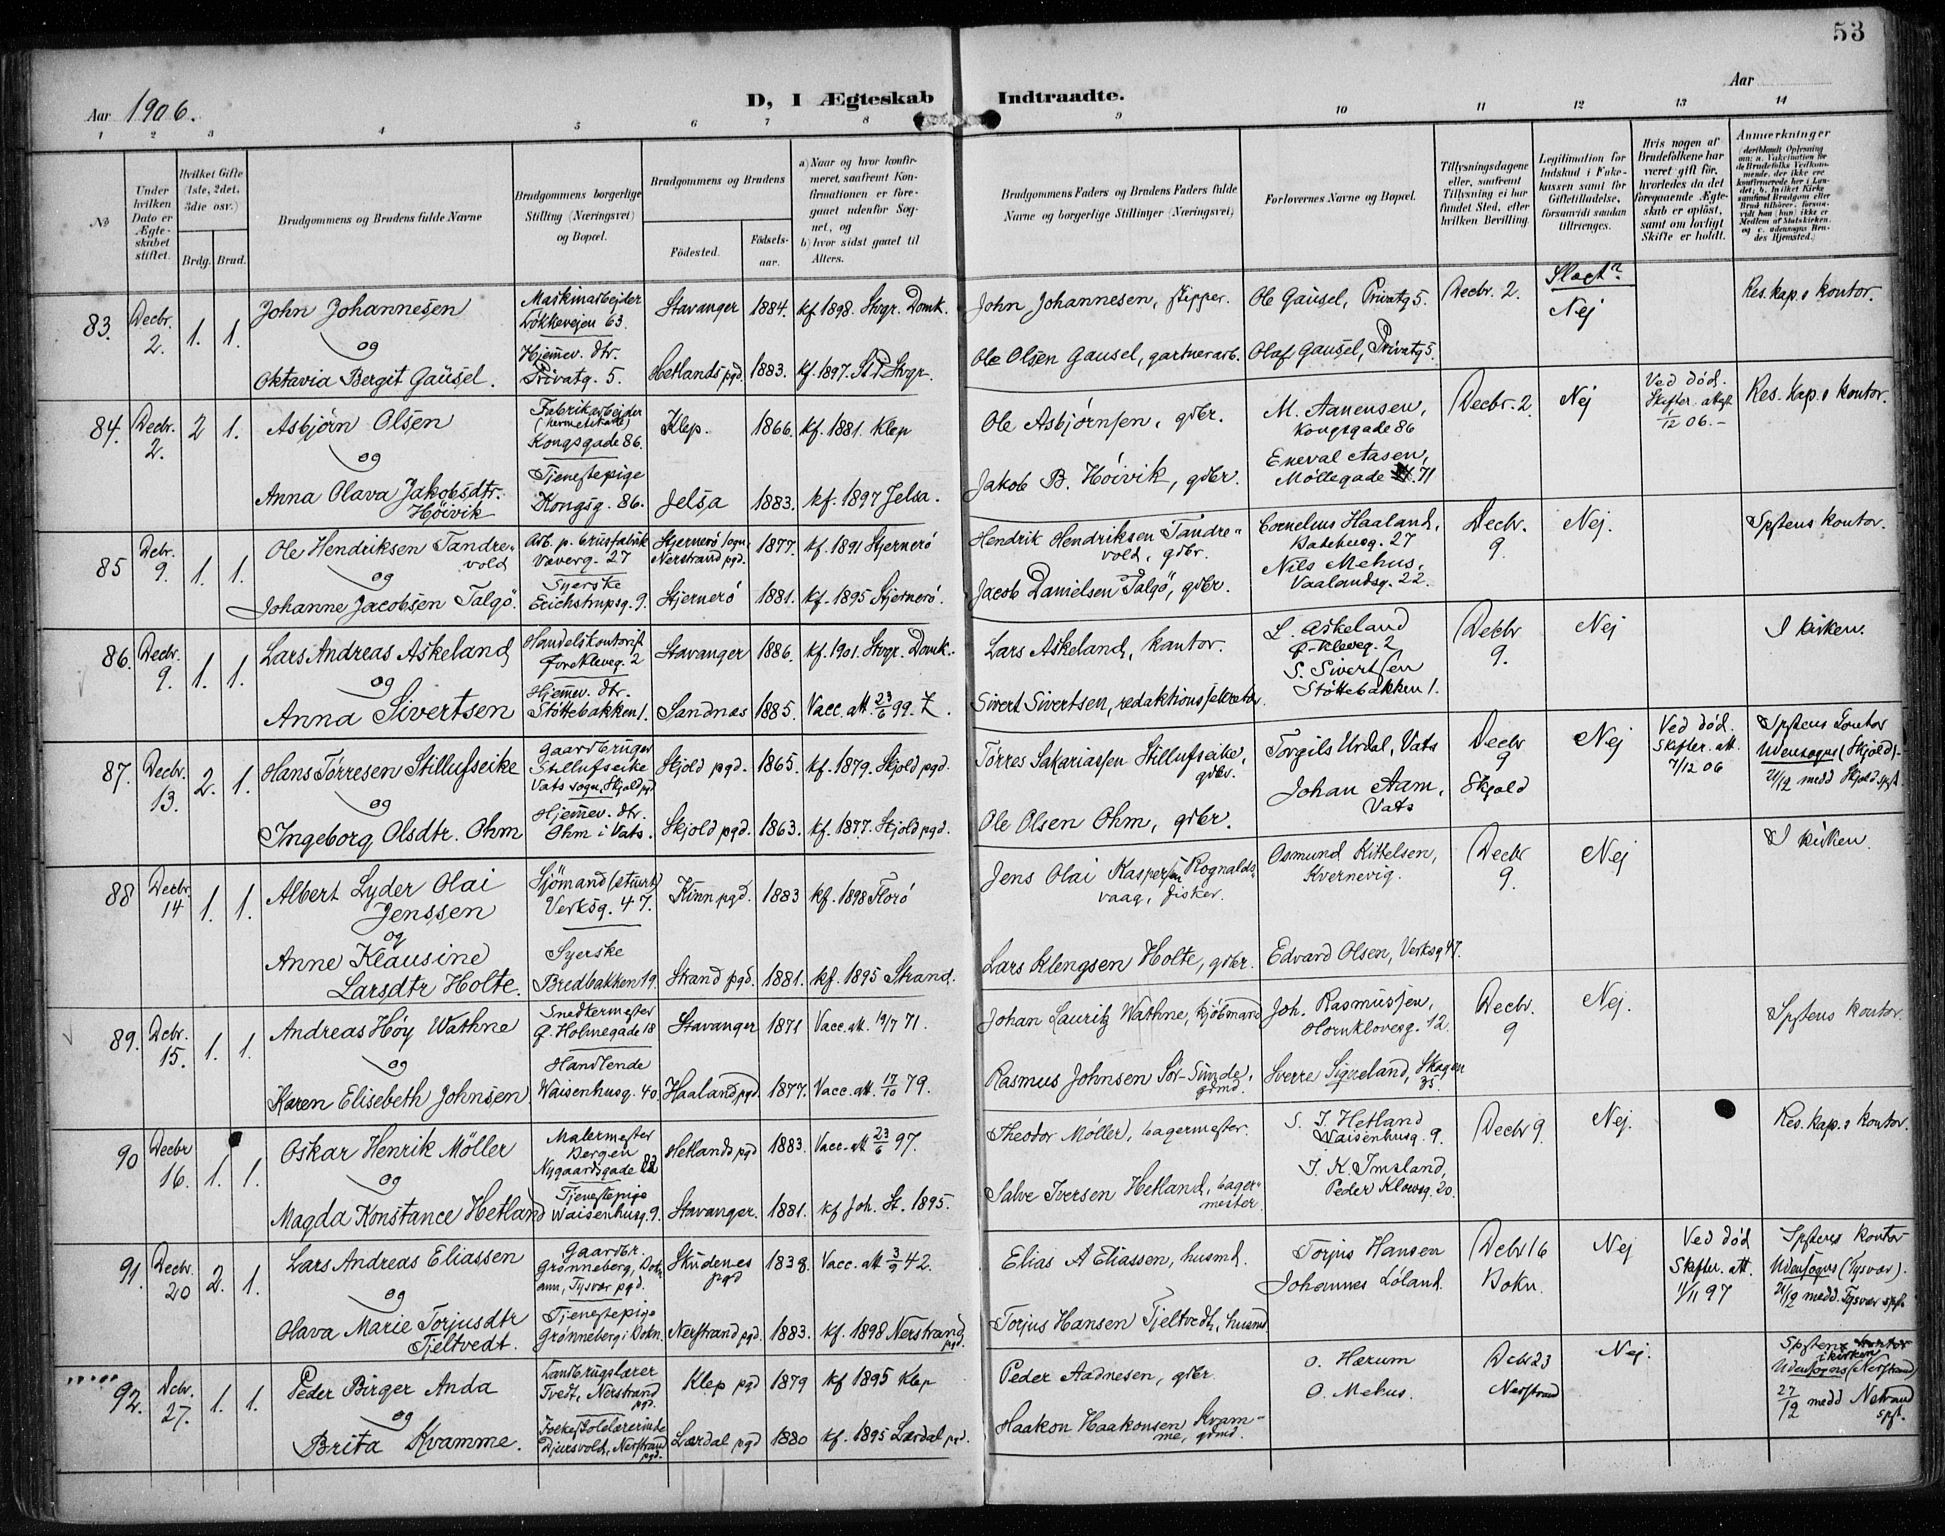 53
Aar 1906.
D, I Ægteskab Indtraadte.
Aar
1 2 3 4 5 6 7 8 9 10 11 12 13 14
No
Under hvilken Dato er Ægteskabet stiftet.
Hvilket Gifte (1ste, 2det, 3die osv.)
Brdg. Brud.
Brudgommens og Brudens fulde Navne
Brudgommens borgerlige Stilling (Næringsvei) og Bopæl.
Brudgommens og Brudens
Fødested.
Fødselsaar.
a) Naar og hvor konfirmeret, saafremt Konfirmationen er foregaaet udenfor Sognet, og
b) hvor sidst gaaet til Alters.
Brudgommens Faders og Brudens Faders fulde Navne og borgerlige Stillinger (Næringsvei)
Forlovernes Navne og Bopæl.
Tillysningsdagene eller, saafremt Tillysning ei har fundet Sted, efter hvilken Bevilling.
Legitimation for Indskud i Enkekassen samt for Giftetilladelse, forsaavidt saadan tiltrænges.
Hvis nogen af Brudefolkene har været gift før, hvorledes da det foregaaende Ægteskab er opløst, samt om lovligt Skifte er holdt.
Anmærkninger
(deriblandt Oplysning om: a. Vakcination for de Brudefolks Vedkommende, der ikke ere konfirmerede her i Landet; b. hvilket Kirkesamfund Brudgom eller Brud tilhører, forsaavidt han (hun) ikke er Medlem af Statskirken, og c. udensogns Brudes Hjemsted.)
83. Decbr. 2. 1. 1.
John Johannesen
og
Oktavia Bergit Gausel.
Maskinarbejder
Løkkevejen 63.
Hjemmev. dtr.
Privatg. 5.
Stavanger 1884. kf 1898. Stvgr. Domk.
Hetlands pgd. 1883. kf. 1897. St. P. Stvgr.
John Johannesen, skipper.
Ole Olsen Gausel, gartnerarb.
Ole Gausel, Privatg 5.
Olaf Gausel, Privatg 5.
Decbr. 2.
Slægt?
Nej
Res. kap.s kontor.
84. Decbr. 2. 2 1.
Asbjörn Olsen
og
Anna Olava Jakobsdtr. Höivik
Fabrikarbejder
(hermetikk)
Kongsgade 86.
Tjenestepige
Kongsg. 86.
Klep. 1866. kf. 1881. Klep
Jelsa 1883. kf. 1897 Jelsa.
Ole Asbjørnsen, gbr.
Jakob B. Høivik, gdbr.
M. Aanensen,
Kongsgade 86
Eneval Aasen,
Möllegade 71
Decbr. 2.
Nej
Ved død.
Skifter. attest
/12 06.-
Res. kap.s kontor.
85 Dcbr. 9. 1. 1.
Ole Hendriksen Tandrevold
og
Johanne Jacobsen Talgö.
Arb. p. brusfabrik
Væverg. 27
Syerske
Erichstrupsg. 9.
Stjernerö sogn, Nerstrand pgd. 1877. kf. 1891 Stjernerö
Stjernerö 1881. kf. 1895 Stjernerö.
Hendrik Hendriksen Tandrevold, gdbr.
Jacob Danielsen Talgö, gdbr.
Cornelius Haaland,
Badehusg. 27
Nils Mehus,
Vaalandsg. 22.
Decbr. 9.
Nej.
Spstens kontor.
86. Decbr. 9. 1. 1.
Lars Andreas Askeland
og
Anna Sivertsen
Handelskontorist
Øvrekleveg. 2
Hjemmev. dtr.
Støttebakken 1.
Stavanger 1886. kf. 1901. Stvgr. Domk.
Sandnas 1885. Vacc. att. 23/6 99.
Lars Askeland, kantor.
Sivert Sivertsen, redaktionssekretær.
L. Askeland
Ø-kleveg. 2
S. Sivertsen
Støttebakken 1.
Decbr 9.
Nej
I kirken.
87. Decbr. 13. 2. 1.
Hans Tørresen Stillufseike
og
Ingeborg Olsdtr. Ohm
Gaardbruger
Stillufseike
Vats sogn, Skjold pgd.
Hjemmev. dtr.
Ohm i Vats.
Skjold pgd. 1865. kf. 1879. Skjold pgd.
Skjold pgd. 1863. kf. 1877. Skjold pgd.
Tørres Sakariassen Stillufseike, gdbr.
Ole Olsen Ohm, gdbr.
Torgils Urdal, Vats
Johan Aam, Vats
Decbr 9
Skjold
Nej
Ved død.
Skifter. att.
7/12 06
Spstens kontor
Udensogns (Skjold).
21/12 medd Skjold spst.
88 Decbr. 14 1. 1.
Albert Lyder Olai Jenssen
og
Anne Klausine Larsdtr Holte.
Sjömand (stuert)
Verksg. 47.
Syerske
Bredbakken 19.
Kinn pgd. 1883 kf. 1898 Florö
Strand pgd. 1881. kf. 1895 Strand.
Jens Olai Kaspersen Rognaldsvaag, fisker.
Lars Klengsen Holte, gdbr.
Osmund Kittelsen,
Kvernevig.
Edvard Olsen, Verksg 47.
Decbr 9.
Nej
I kirken.
89. Dcbr. 15. 1. 1.
Andreas Höy Wathne
og
Karen Elisebeth Johnsen
Snedkermester
Ø. Holmegade 18
Handlende
Waisenhusg. 40
Stavanger 1871 Vacc. att. 19/7 71.
Haaland pgd. 1877. Vacc. att. 17/10 79.
Johan Lauritz Wathne, kjøbmand
Rasmus Johnsen Sör-Sunde, grmd.
Joh. Rasmussen,
Hornklovesg. 12.
Sverre Sigveland, Skagen 35.
Decbr. 9
Nej.
Spstens kontor.
90 Decbr 16. 1. 1.
Oskar Henrik Möller
og
Magda Konstance Hetland
Malermester
Bergen
Nygaardsgade 82
Tjenestepige
Waisenhusg. 9.
Hetlands pgd 1883. Vacc. att 23/6 97.
Stavanger. 1881. kf Joh. St. 1895.
Theodor Møller, bagermester.
Salve Iversen Hetland, bagermester.
S. I. Hetland
Waisenhusg. 9.
I. K. Imsland,
Peder Klowsg. 20.
Decbr 9.
Nej.
Res. kap.s kontor.
91. Decbr. 20 2. 1.
Lars Andreas Eliassen
og
Hava Marie Torjusdtr Tjeltvedt.
Gaardbr.
Grønneberg, Bokn
ann, Tysvær pgd.
Tjenestepige
Grønneberg i Bokn.
Skudenes pgd 1838. Vacc. att 3/9 42.
Nerstrand pgd. 1883. kf. 1898 Nerstrand pgd.
Elias A Eliassen, husmd.
Torjus Hansen Tjeltvedt, husmd
Torjus Hansen
Johannes Löland.
Dcbr 16
Bokn.
Nej
Ved død
Skifter. att.
1/11 97
Spstens kontor
Udensogns (Tysvær).
21/12 medd. Tysvær spst.
92. Dcbr. 27. 1. 1.
Peder Birger Anda
og
Brita Kvamme.
Landbrugslærer
Tvedt, Nerstrand pgd.
Folkeskolelærerinde
Djursvold, Nerstrand pgd.
Klep pgd 1879 kf 1895 Klep
Lærdal pgd 1880 kf. 1895 Lærdal pgd.
Peder Aadnesen, gdbr.
Haakon Haakonsen Kvamme, grmd.
O. Hærum
O. Mehus.
Dcbr 23
Nerstrand
Nej.
Spsten kontor
i kirken
Udensogns (Nerstrand)
27/12 medd Nerstrand spst.